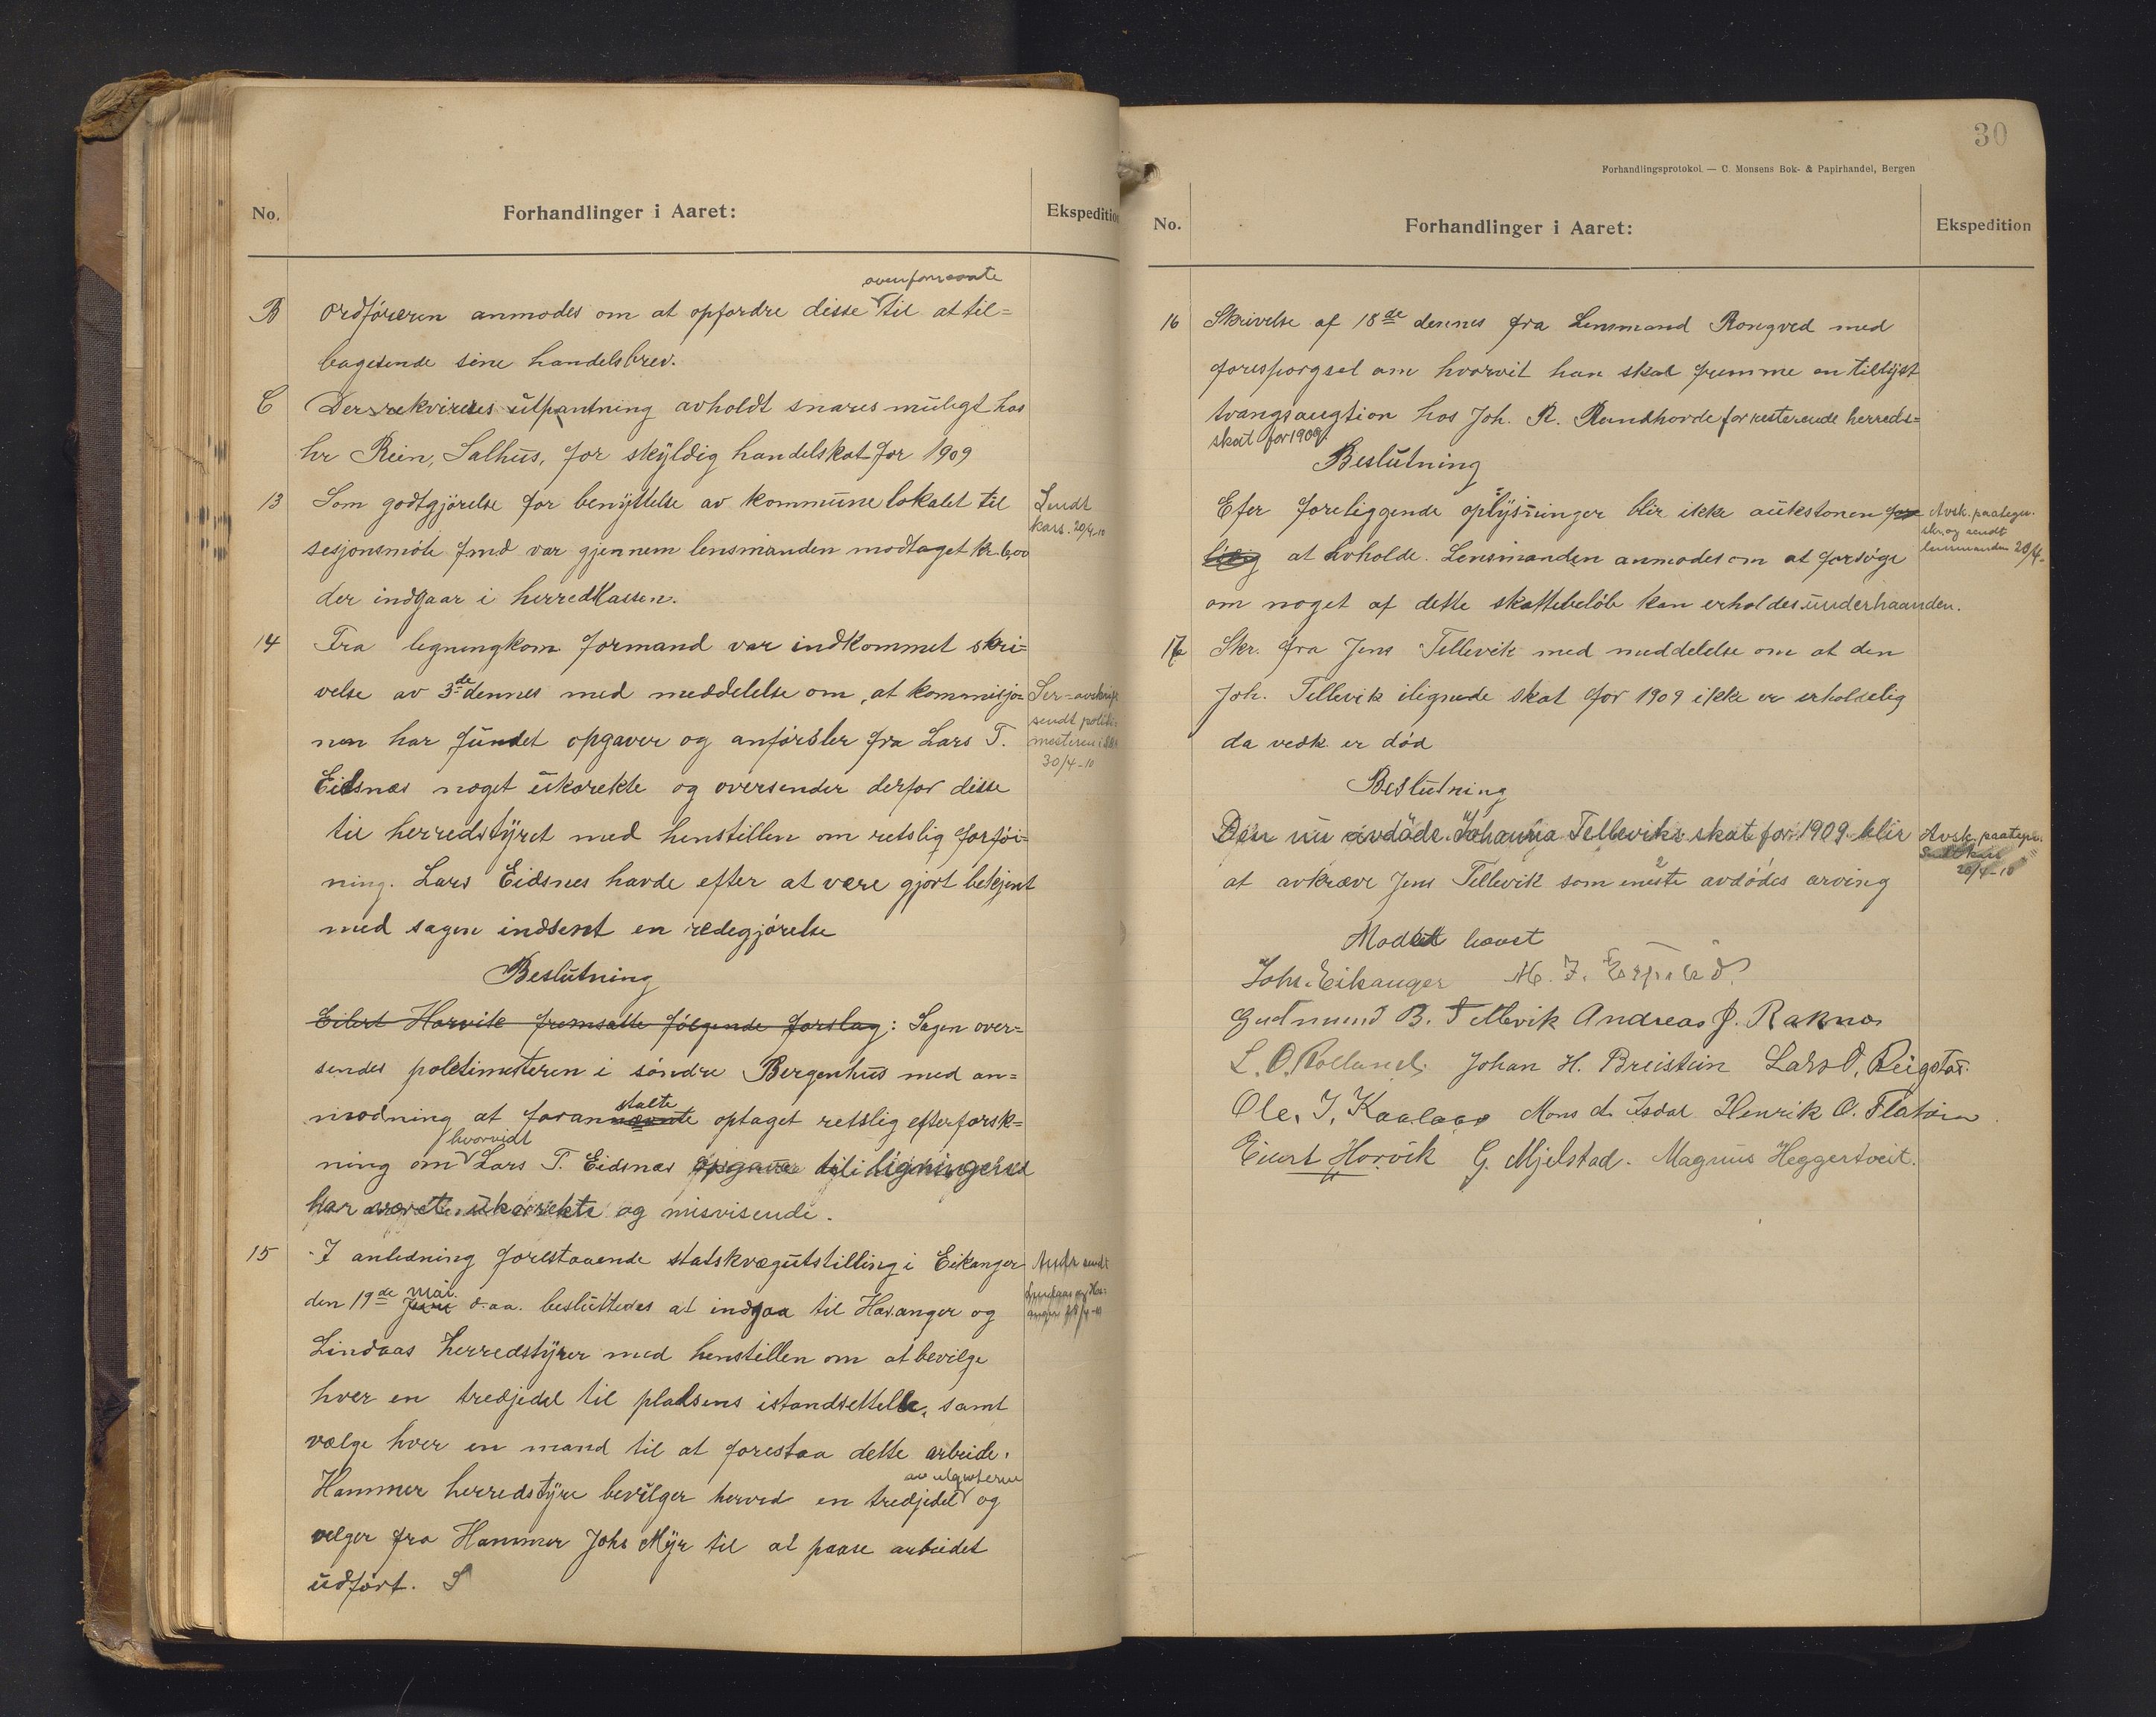 No.
Forhandlinger i Aaret:
Ekspedition
B Ordføreren anmodes om at opfordre disse ovenfornævnte til at til=
bagesende sine handelsbrev.
C Der rekvireres utpantning avholdt snares muligt hos
hr Rein, Salhus, for skyldig handelskat for 1909
13 Som godtgjørelse for benyttelse av kommunelokalet til
sesjonsmøte fmd var gjennem lensmanden modtaget kr.
der indgaar i herredkassen.
Sendt
kass. 20/4-10
14 Fra legningkom formand var indkommet skri=
velse av 3de dennes med meddelelse om, at kommisjo=
nen har fundet opgaver og anførsler fra Lars T.
Eidsnæs noget ukorekte og oversender derfor disse
til herredstyret med henstillen om retslig forføi=
ning. Lars Eidsnes havde efter at være gjort bekjent
med sagen indsent en redegjørelse
sendt politi=
mesteren i
30/4-10
Beslutning
Eilert Horvik fremsatte følgende forslag: Sagen over=
sendes politimesteren i søndre Bergenhus med an=
modning at foranstalte optaget retslig efterforsk=
ning om hvorvidt Lars T. Eidsnæs opgave til ligningerne
har været ukorrekte og misvisende.
15 I anledning forestaaende statskvægutstilling i Eikanger
den 19de mai d.aa. besluttedes at indgaa til Hosanger og
Lindaas herredstyrer med henstillen om at bevilge
hver en tredjedel til pladsens istandsettelse, samt
vælge hver en mand til at forestaa dette arbeide.
Hammer herredstyre bevilger herved en tredjedel av utgifterne og
velger fra Hammer Johs Myr til at paase arbeidet
udført. S
30
Forhandlingsprotokol. — C. Monsens Bok- & Papirhandel, Bergen
No.
Forhandlinger i Aaret:
Ekspedition
16 Skrivelse af 18de dennes fra Lensmand Rongved med
forespørgsel om hvorvit han skal fremme en tillyst
tvangsaugtion hos Joh. R. Randhovde for resterende herreds=
skat for 1909.
Beslutning
Efer foreliggende oplysninger blir ikke auktionen
at avholde. Lensmanden anmodes om at forsøge
om noget af dette skattebeløb kan erholdes underhaanden.
Avsk. paategn.
skr. og sendt
lensmanden 20/4-
17 Skr. fra Jens Tellevik med meddelelse om at den
Joh. Tellevik ilignede skat for 1909 ikke er erholdelig
da vedk. er død
Beslutning
Den nu avdøde Johanna Telleviks skat for 1909 blir
at avkræve Jens Tellevik som eneste avdødes arving
Avsk. paategn.
Sendt kass
28/4-10
Mødet hævet
Johs. Eikanger M. J. Espelid
Gudmund B. Tellevik Andreas J. Raknes
L. O. Rolland. Johan H. Breistein Lars O. Reigstad.
Ole. J. Kaalaas Mons d. Isdal Henrik O. Flatøen
Eilert Horvik G. Mjelstad. Magnus Heggertveit.